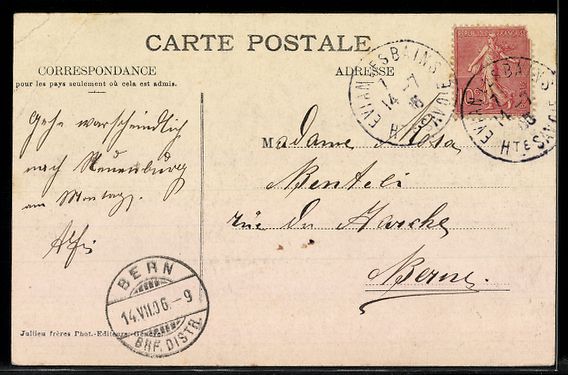 CARTE POSTALE
CORRESPONDANCE
pour les pays seulement où cela est admis.
ADRESSE
EVIAN LES BAINS
14 -7
06
HTE SAVOIE
EVIAN LES BAINS
HTE SAVOIE
Gehe warscheindlich
nach Neuenburg
am Montag.
Madame Rosa
Benteli
rue du Marché
Berne.
BERN
14.VII.06.-9
BRF. DISTR.
Jullien frères Phot.-Editeurs, Genève